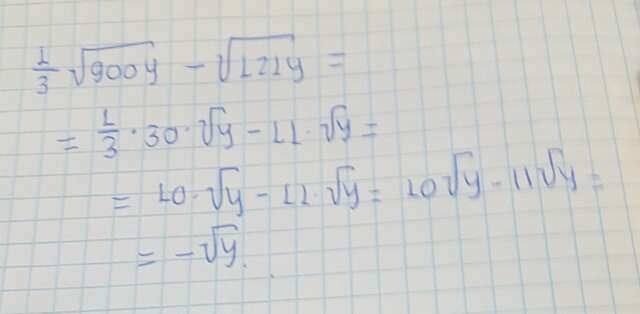 1/3 √900y - √121y =
= 1/3 · 30 · √y - 11 · √y =
= 10 · √y - 11 · √y = 10√y - 11√y =
= -√y.